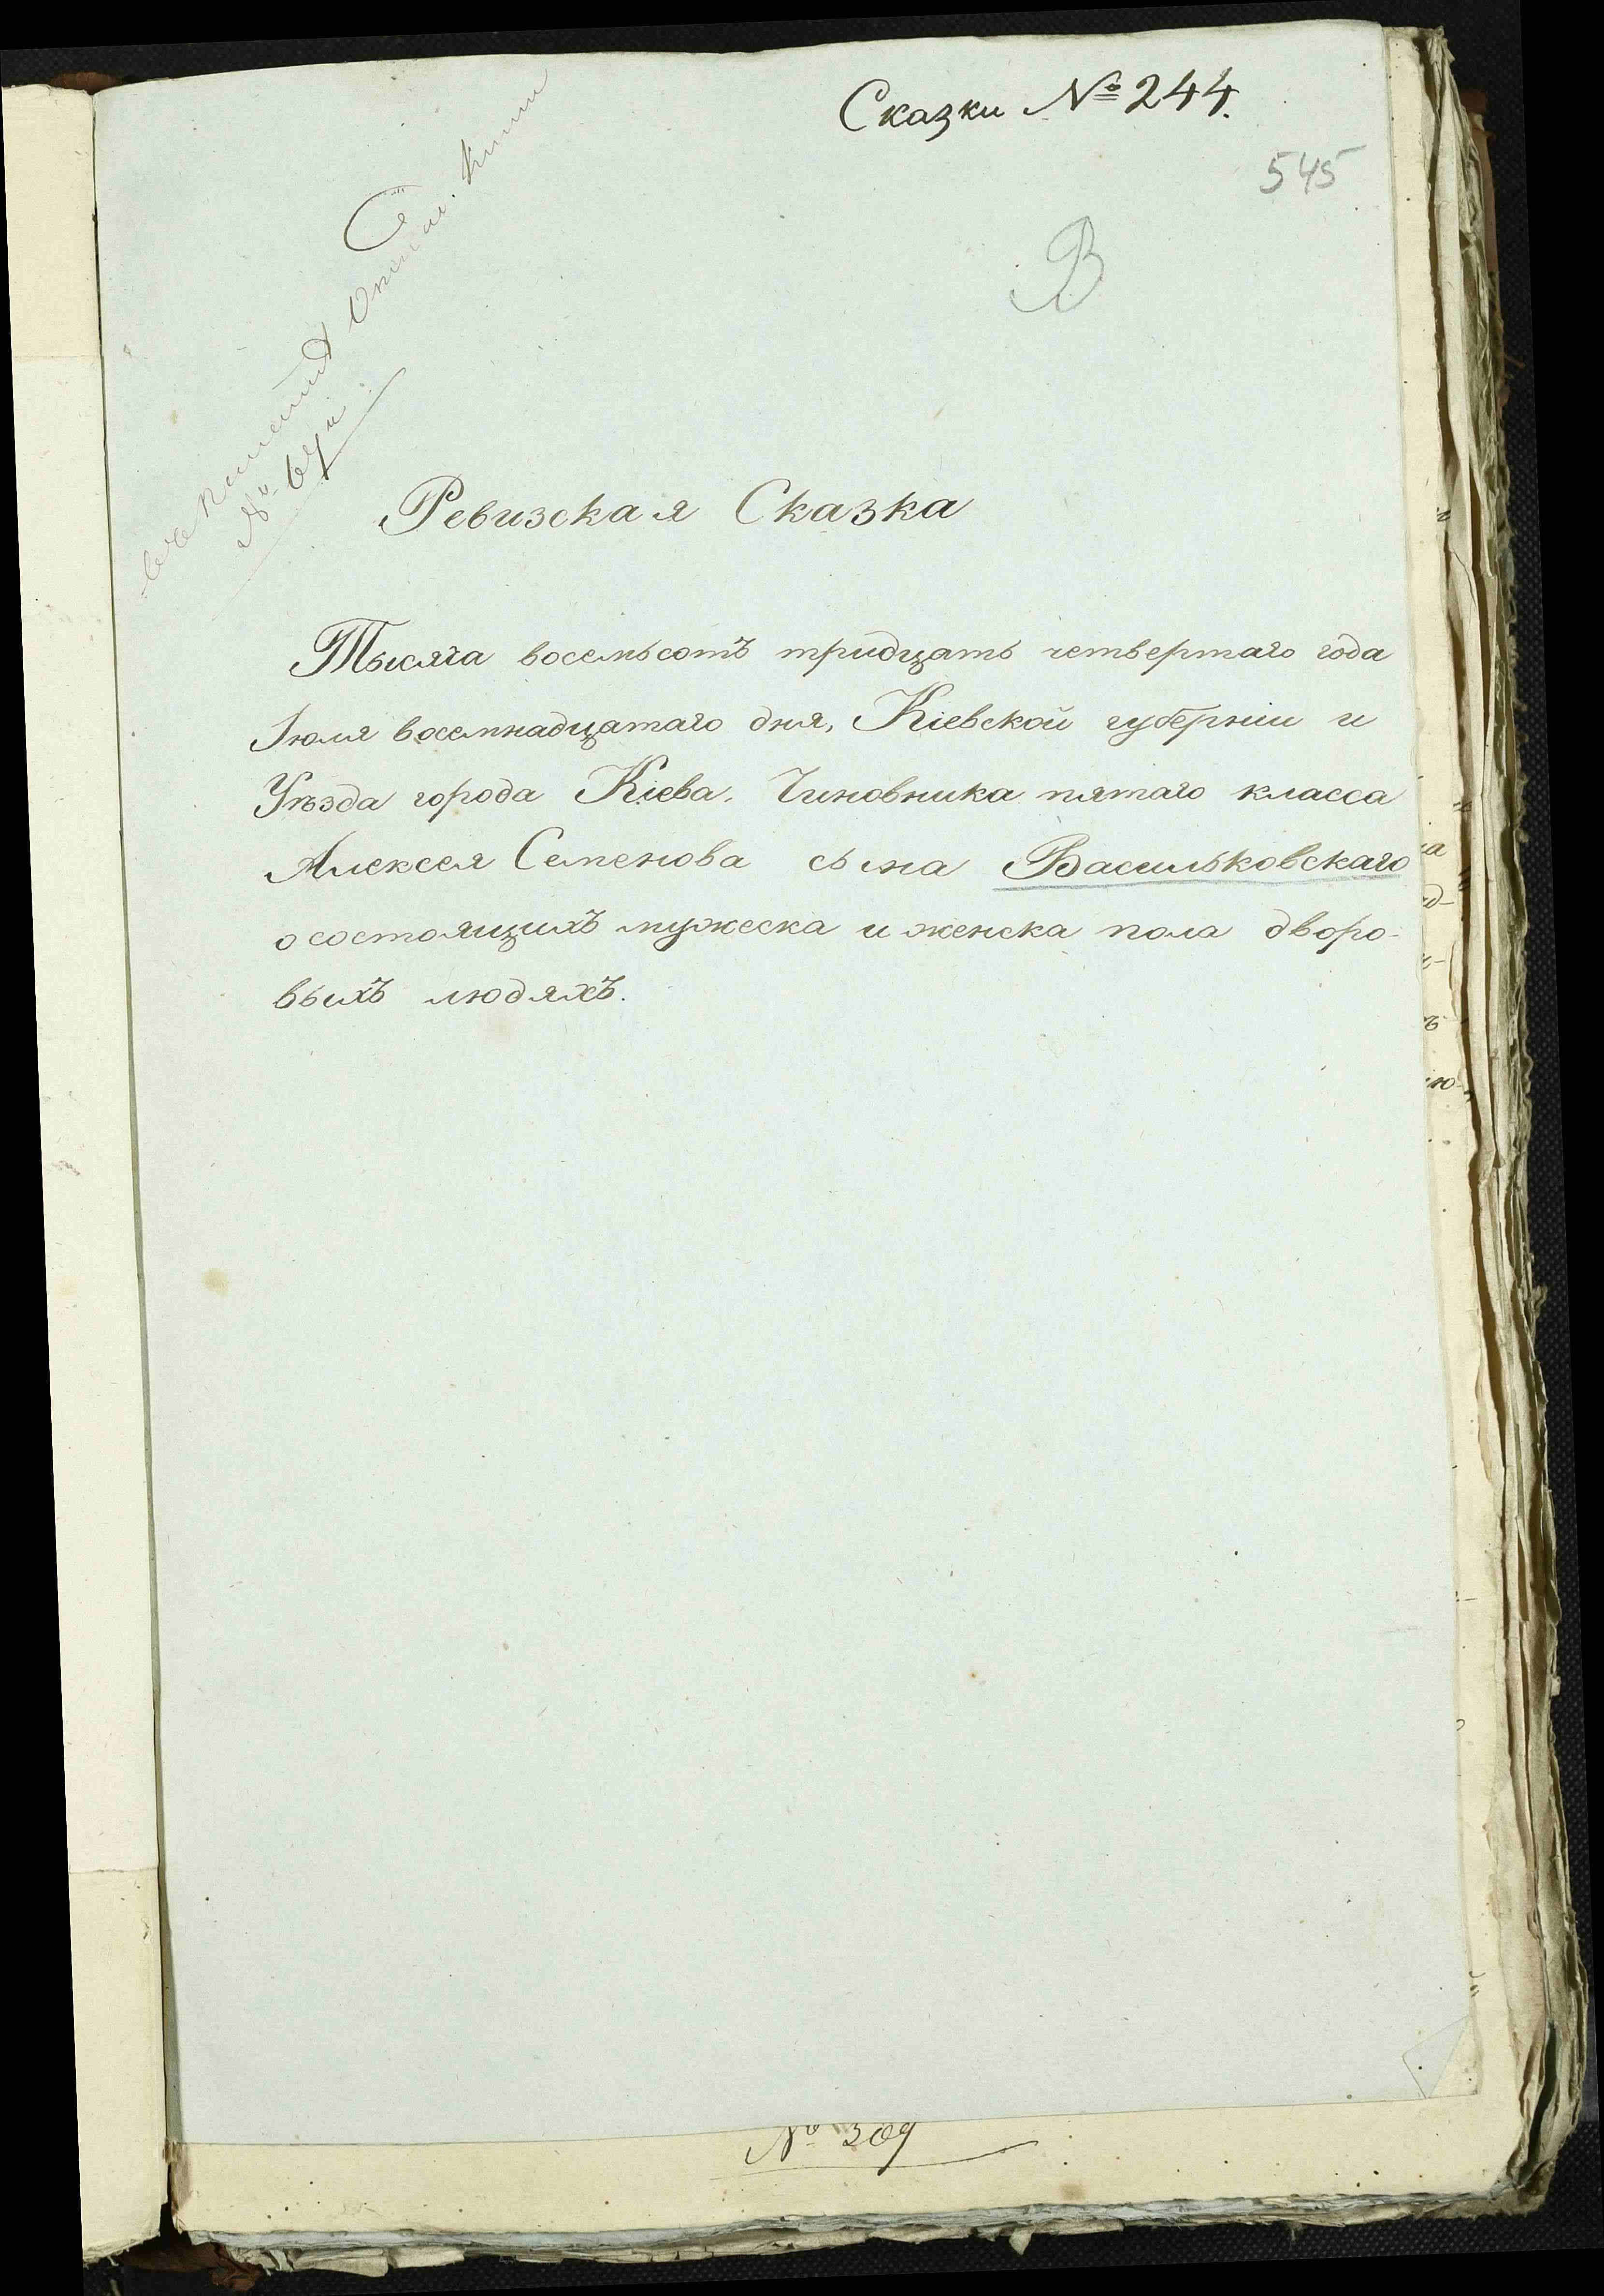 Сказки № 244.
545
В
Ревизская Сказка
Тысяча восемьсотъ тридцать четвертаго года
Іюля восемнадцатаго дня, Кіевской губерніи и
Уѣзда города Кіева. Чиновника пятаго класса
Алексея Семенова сына Васильковскаго
о состоящихъ мужеска и женска пола дворо-
выхъ людяхъ.
№ 309